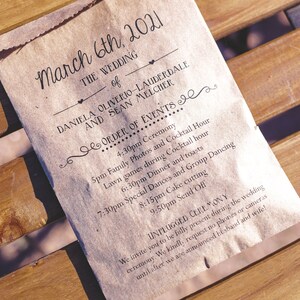 March 6th, 2021
THE WEDDING
of
DANIELA OLIVERIO-LAUDERDALE
AND SEAN MELCHER
ORDER OF EVENTS
4:30pm Ceremony
5pm Family Photos and Cocktail Hour
Lawn games during Cocktail Hour
6:30pm Dinner and toasts
7:30pm Special Dances and Group Dancing
8:15pm Cake cutting
9:50pm Send Off
UNPLUGGED CEREMONY
We invite you to be fully present during the wedding
ceremony. We kindly request no phones or cameras
until after we are announced husband and wife!